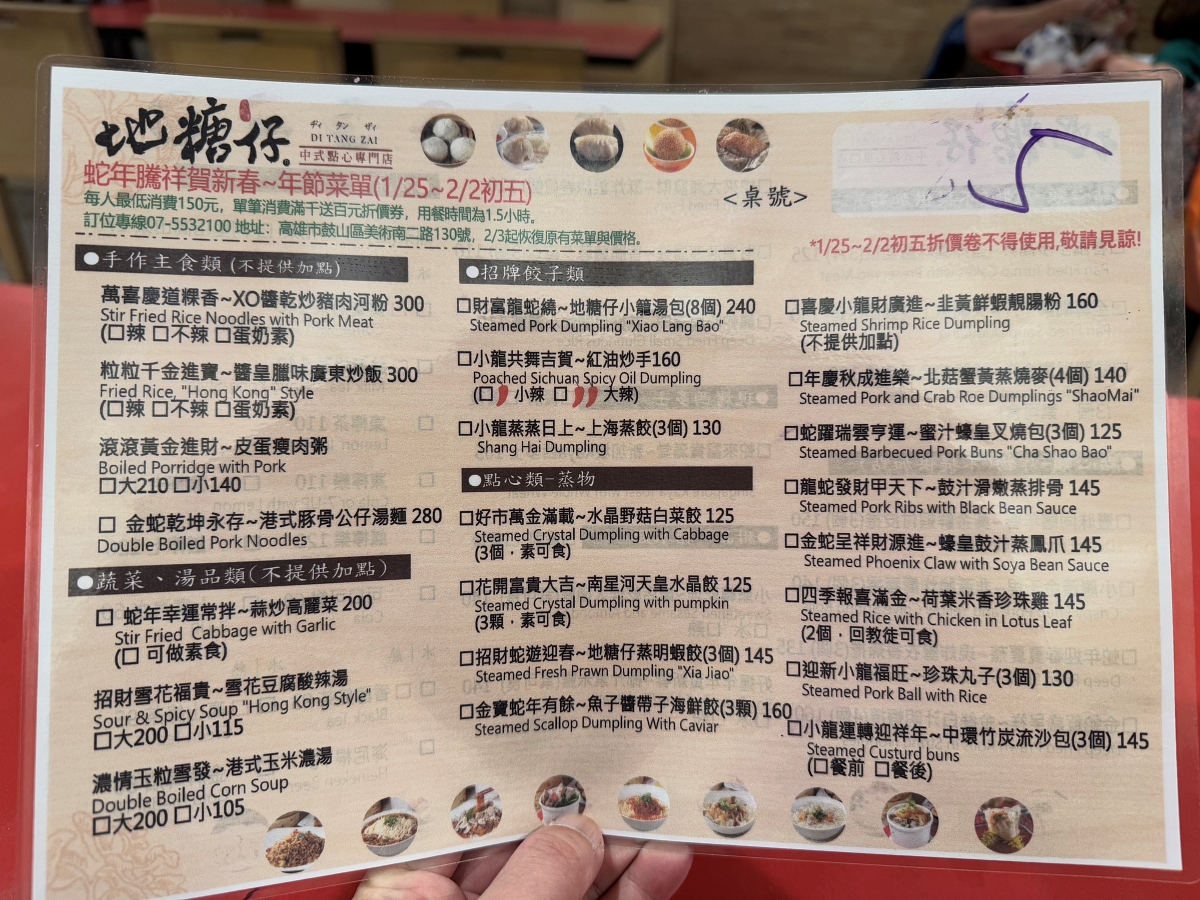 地糖仔
ヂィ タン ザィ
DI TANG ZAI
中式點心專門店
蛇年騰祥賀新春~年節菜單(1/25~2/2初五)
每人最低消費150元，單筆消費滿千送百元折價券，用餐時間為1.5小時。
訂位專線07-5532100 地址：高雄市鼓山區美術南二路130號，2/3起恢復原有菜單與價格。
<桌號>
5
*1/25~2/2初五折價卷不得使用,敬請見諒!
●手作主食類 (不提供加點)
萬喜慶道粿香~XO醬乾炒豬肉河粉 300
Stir Fried Rice Noodles with Pork Meat
(☐辣 ☐不辣 ☐蛋奶素)
粒粒千金進寶~醬皇臘味廣東炒飯 300
Fried Rice, "Hong Kong" Style
(☐辣 ☐不辣 ☐蛋奶素)
滾滾黃金進財~皮蛋瘦肉粥
Boiled Porridge with Pork
☐大210 ☐小140
☐ 金蛇乾坤永存~港式豚骨公仔湯麵 280
Double Boiled Pork Noodles
●蔬菜、湯品類(不提供加點)
☐ 蛇年幸運常拌~蒜炒高麗菜 200
Stir Fried Cabbage with Garlic
(☐ 可做素食)
招財雪花福貴~雪花豆腐酸辣湯
Sour & Spicy Soup "Hong Kong Style"
☐大200 ☐小115
濃情玉粒雪發~港式玉米濃湯
Double Boiled Corn Soup
☐大200 ☐小105
●招牌餃子類
☐財富龍蛇繞~地糖仔小籠湯包(8個) 240
Steamed Pork Dumpling "Xiao Lang Bao"
☐小龍共舞吉賀~紅油炒手160
Poached Sichuan Spicy Oil Dumpling
(☐ 小辣 ☐ 大辣)
☐小龍蒸蒸日上~上海蒸餃(3個) 130
Shang Hai Dumpling
●點心類-蒸物
☐好市萬金滿載~水晶野菇白菜餃 125
Steamed Crystal Dumpling with Cabbage
(3個．素可食)
☐花開富貴大吉~南星河天皇水晶餃 125
Steamed Crystal Dumpling with pumpkin
(3顆，素可食)
☐招財蛇遊迎春~地糖仔蒸明蝦餃(3個) 145
Steamed Fresh Prawn Dumpling "Xia Jiao"
☐金寶蛇年有餘~魚子醬帶子海鮮餃(3顆) 160
Steamed Scallop Dumpling With Caviar
☐喜慶小龍財廣進~韭黃鮮蝦靚腸粉 160
Steamed Shrimp Rice Dumpling
(不提供加點)
☐年慶秋成進樂~北菇蟹黃蒸燒麥(4個) 140
Steamed Pork and Crab Roe Dumplings "ShaoMai"
☐蛇躍瑞雲亨運~蜜汁蠔皇叉燒包(3個) 125
Steamed Barbecued Pork Buns "Cha Shao Bao"
☐龍蛇發財甲天下~鼓汁滑嫩蒸排骨 145
Steamed Pork Ribs with Black Bean Sauce
☐金蛇呈祥財源進~蠔皇鼓汁蒸鳳爪 145
Steamed Phoenix Claw with Soya Bean Sauce
☐四季報喜滿金~荷葉米香珍珠雞 145
Steamed Rice with Chicken in Lotus Leaf
(2個．回教徒可食)
☐迎新小龍福旺~珍珠丸子(3個) 130
Steamed Pork Ball with Rice
☐小龍運轉迎祥年~中環竹炭流沙包(3個) 145
Steamed Custurd buns
(☐餐前 ☐餐後)